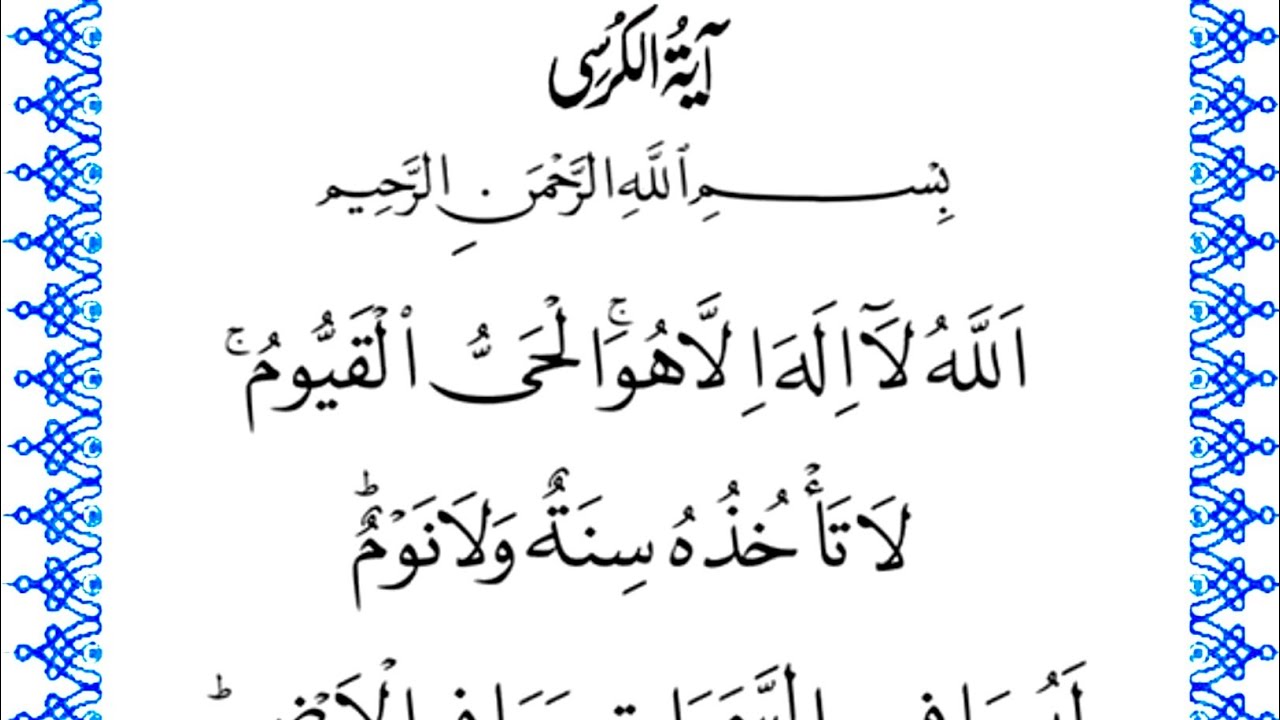 آيَةُ الكُرْسِى
بِسْمِ ٱللَّهِ الرَّحْمَنِ الرَّحِيمِ
اَللَّهُ لَآ اِلَهَ اِلَّا هُوَ ۚ اَلْحَىُّ ٱلْقَيُّومُ ۚ
لَا تَأْخُذُهُ سِنَةٌ وَلَا نَوْمٌ ؕ